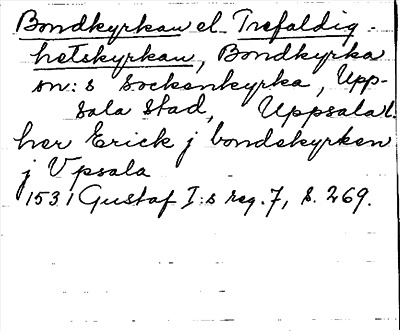 Bondkyrkan el. Trefaldig-
hetskyrkan, Bondkyrka
sn:s sockenkyrka, Upp-
sala stad, Uppsala l.
her Erick j bondekyrken
j Vpsala
1531 Gustaf I:s reg. 7, s. 269.